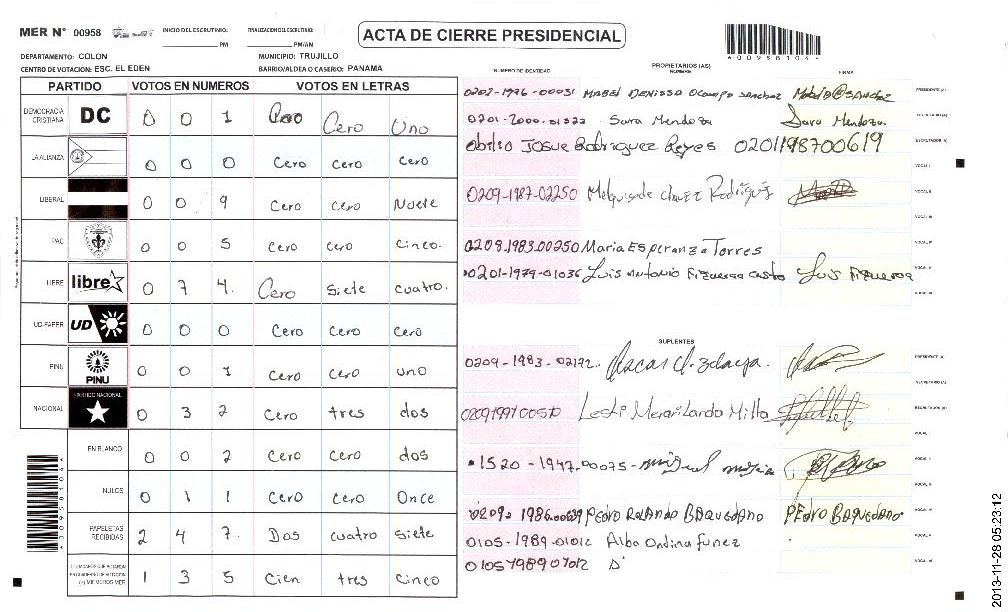 MER N° 00958
INICIO DEL ESCRUTINIO: PM
FINALIZACION DEL ESCRUTINIO: PM/AM
ACTA DE CIERRE PRESIDENCIAL
DEPARTAMENTO: COLON
MUNICIPIO: TRUJILLO
CENTRO DE VOTACION: ESC. EL EDEN
BARRIO/ALDEA O CASERIO: PANAMA
PARTIDO VOTOS EN NUMEROS VOTOS EN LETRAS
DEMOCRACIA CRISTIANA DC 0 0 1 Cero Cero Uno
LA ALIANZA 0 0 0 Cero Cero Cero
LIBERAL 0 0 9 Cero Cero Nueve
PAC 0 0 5 Cero Cero Cinco.
LIBRE libre 0 7 4. Cero Siete cuatro.
UD-FAPER UD 0 0 0 Cero Cero Cero
PINU PINU 0 0 1 Cero Cero uno
NACIONAL PARTIDO NACIONAL 0 3 2 Cero tres dos
EN BLANCO 0 0 2 Cero Cero dos
NULOS 0 1 1 Cero Cero Once
PAPELETAS RECIBIDAS 2 4 7. Dos cuatro siete
1 3 5 Cien tres Cinco
NUMERO DE IDENTIDAD
PROPIETARIOS (AS)
NOMBRE
FIRMA
A00958104
MABEL DENISSA Ocampo Sanchez
PRESIDENTE (A)
Sara Mendoza Sara Mendoza.
Josue Rodriguez Reyes 0201198700619
0209-1987-02250 Chavez Rodriguez
0208.1983.00250 Maria Esperanza Torres
0201-1979-01036 Luis Antonio Figueroa Castro Luis Figueroa
SUPLENTES
0209-1983-02192. Oscar
PRESIDENTE (A)
Milla
1520-1947.00075- Miguel
PEDRO ROLANDO BAQUEDANO PEDRO BAQUEDANO
0105-1989-01012 Alba Ondina Funez
2013-11-28 05:23:12